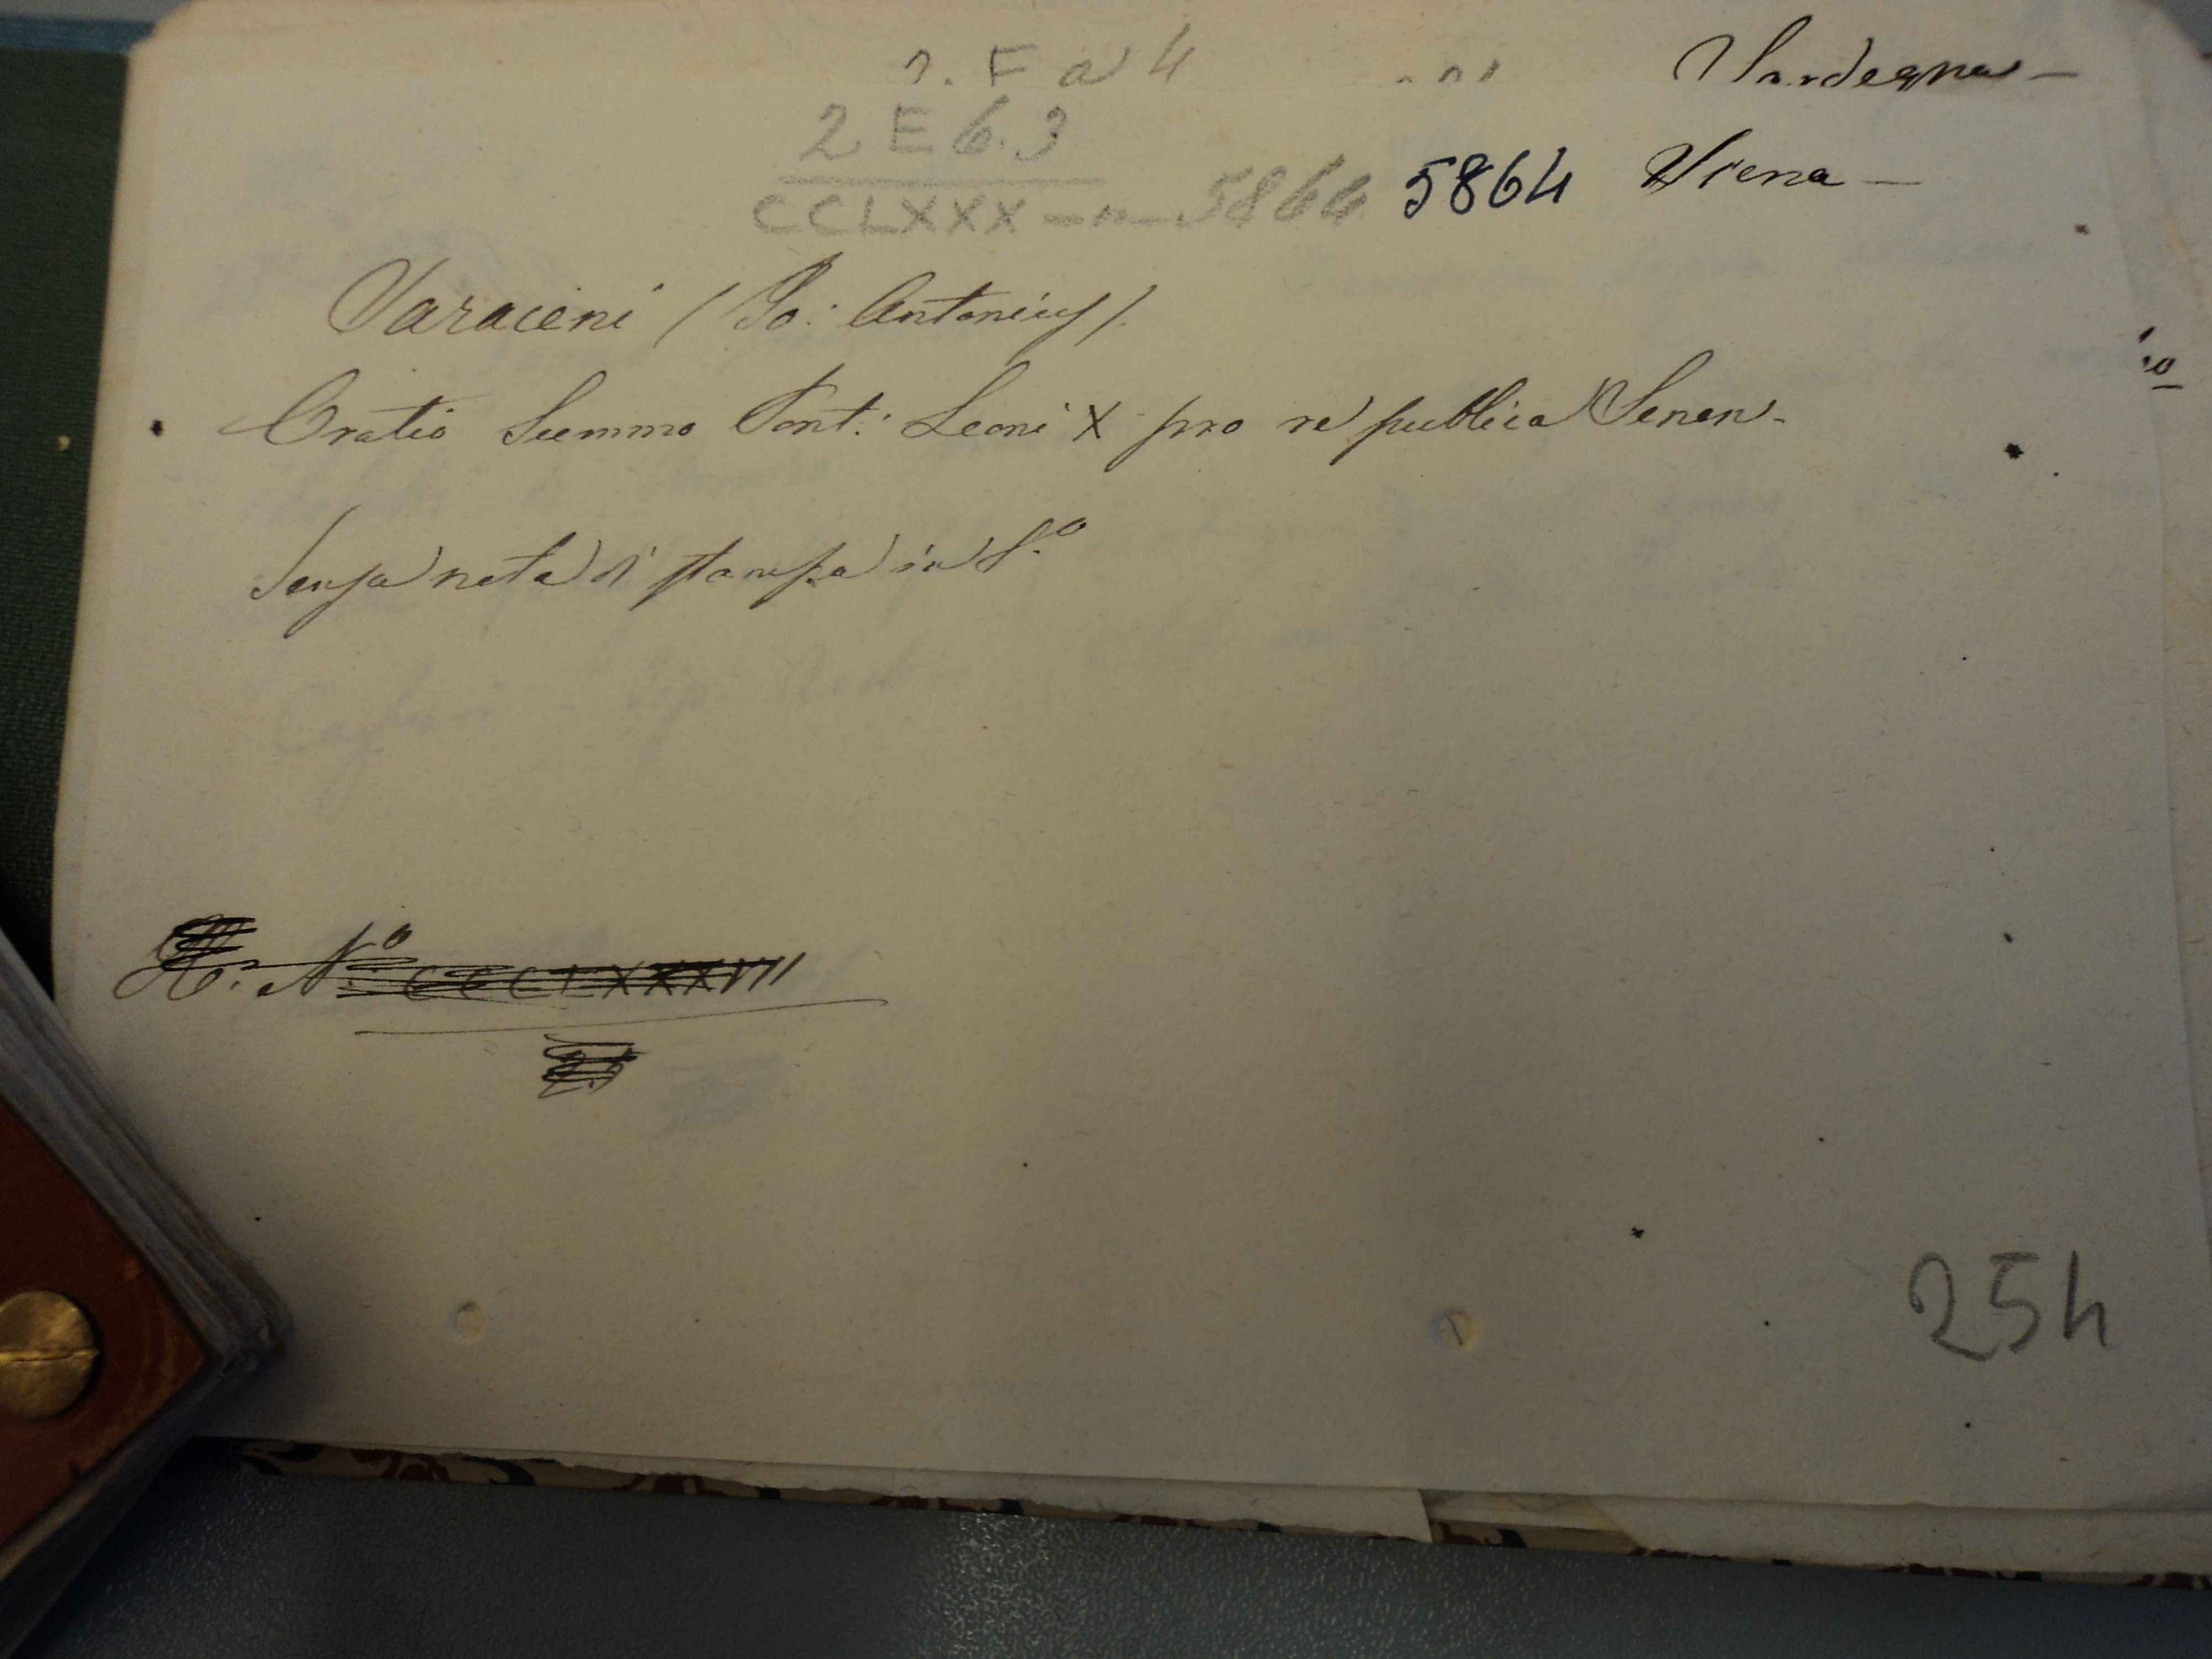 F a 4 Sardegna —
2 E 6.3
CCLXXX — n — 5864 5864 Siena —
Saraceni (Jo: Antonius).
Oratio Summo Pont: Leoni X pro re publica Senen-
Senza nota di stampa in 8.º
N.º CCCLXXXVII
254